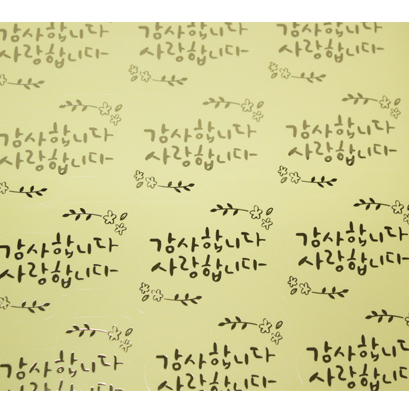 감사합니다
사랑합니다
감사합니다
사랑합니다
감사합니다
사랑합니다
감사합니다
사랑합니다
감사합니다
사랑합니다
감사합니다
사랑합니다
감사합니다
사랑합니다
감사합니다
사랑합니다
감사합니다
사랑합니다
감사합니다
사랑합니다
감사합니다
사랑합니다
감사합니다
사랑합니다